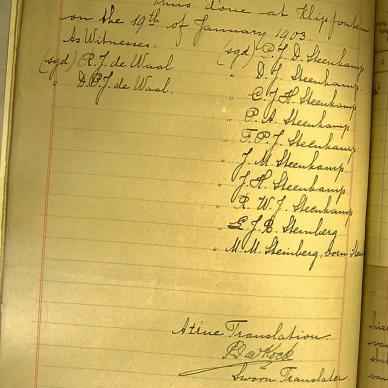 Thus done at Klipfontein
on the 19th of January 1903.
As Witnesses. (sgd) P. J. D. Steenkamp
(sgd) R. J. de Waal " D. J. Steenkamp
" D. P. J. de Waal. " C. J. H. Steenkamp
" P. A. Steenkamp
" T. P. J. Steenkamp
" J. M. Steenkamp.
" J. H. Steenkamp.
" R. W. J. Steenkamp
" L. J. R. Steinberg
" M. M. Steinberg, born
A true Translation.
Sworn Translator